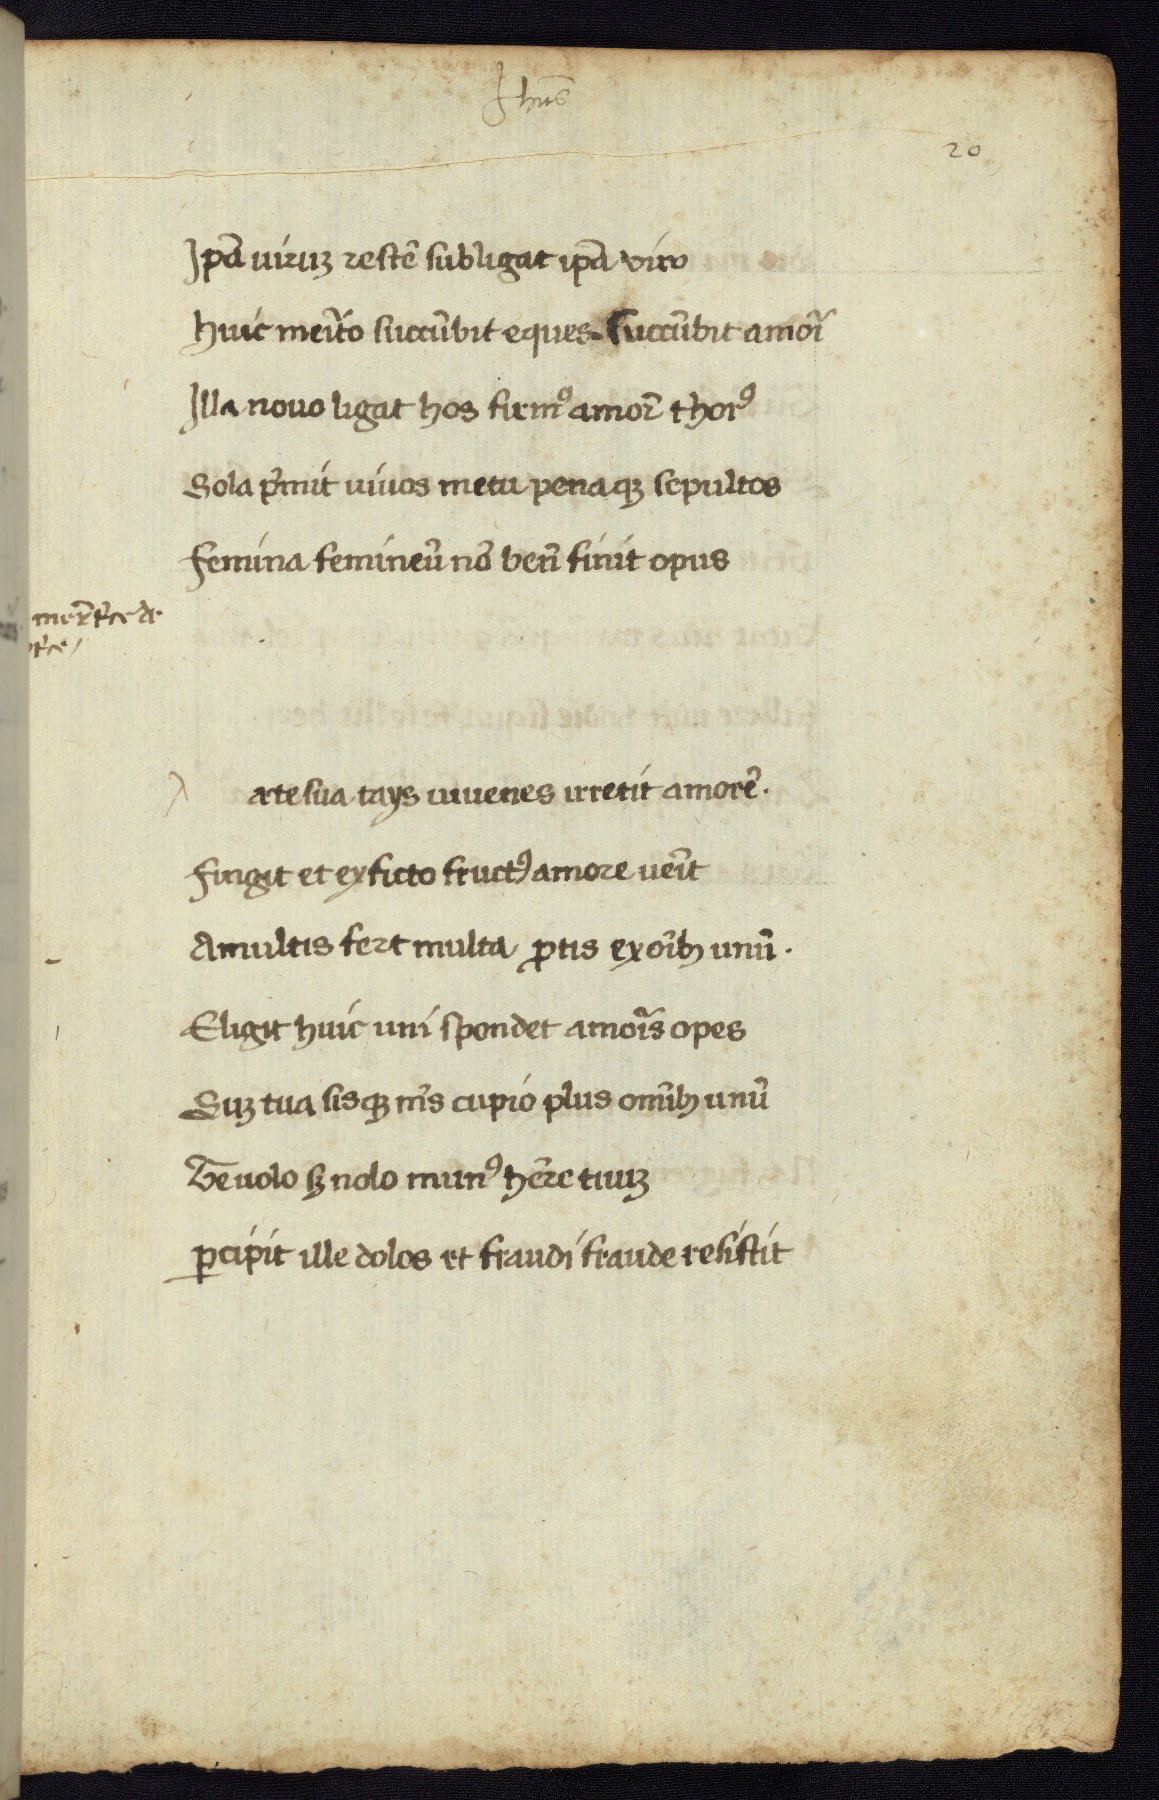 Jhūs
20
Ipā uiruꝫ restē subligat ipā viro
Huic meĩto succūbit eques. Succūbit amoĩ
Illa nouo ligat hos firmꝰ amoř thorꝰ
Sola p̃mit viuos metu penaqꝫ sepultos
Femina femineū nō ben̄ finit opus
mer̃t̃ce de
arte sua tays iuuenes irretit amorē.
Fingit et ex ficto fructꝰ amore uen̄it
A multis fert multa, ꝓtis ex oībꝫ unū.
Eligit huic uni spondet amoĩs opes
Suꝫ tua sisqꝫ m̄s cupio plus omībꝫ unū
Te uolo sꝫ nolo munꝰ hēre tuuꝫ
ꝑcipit ille dolos et fraudi fraude resistit